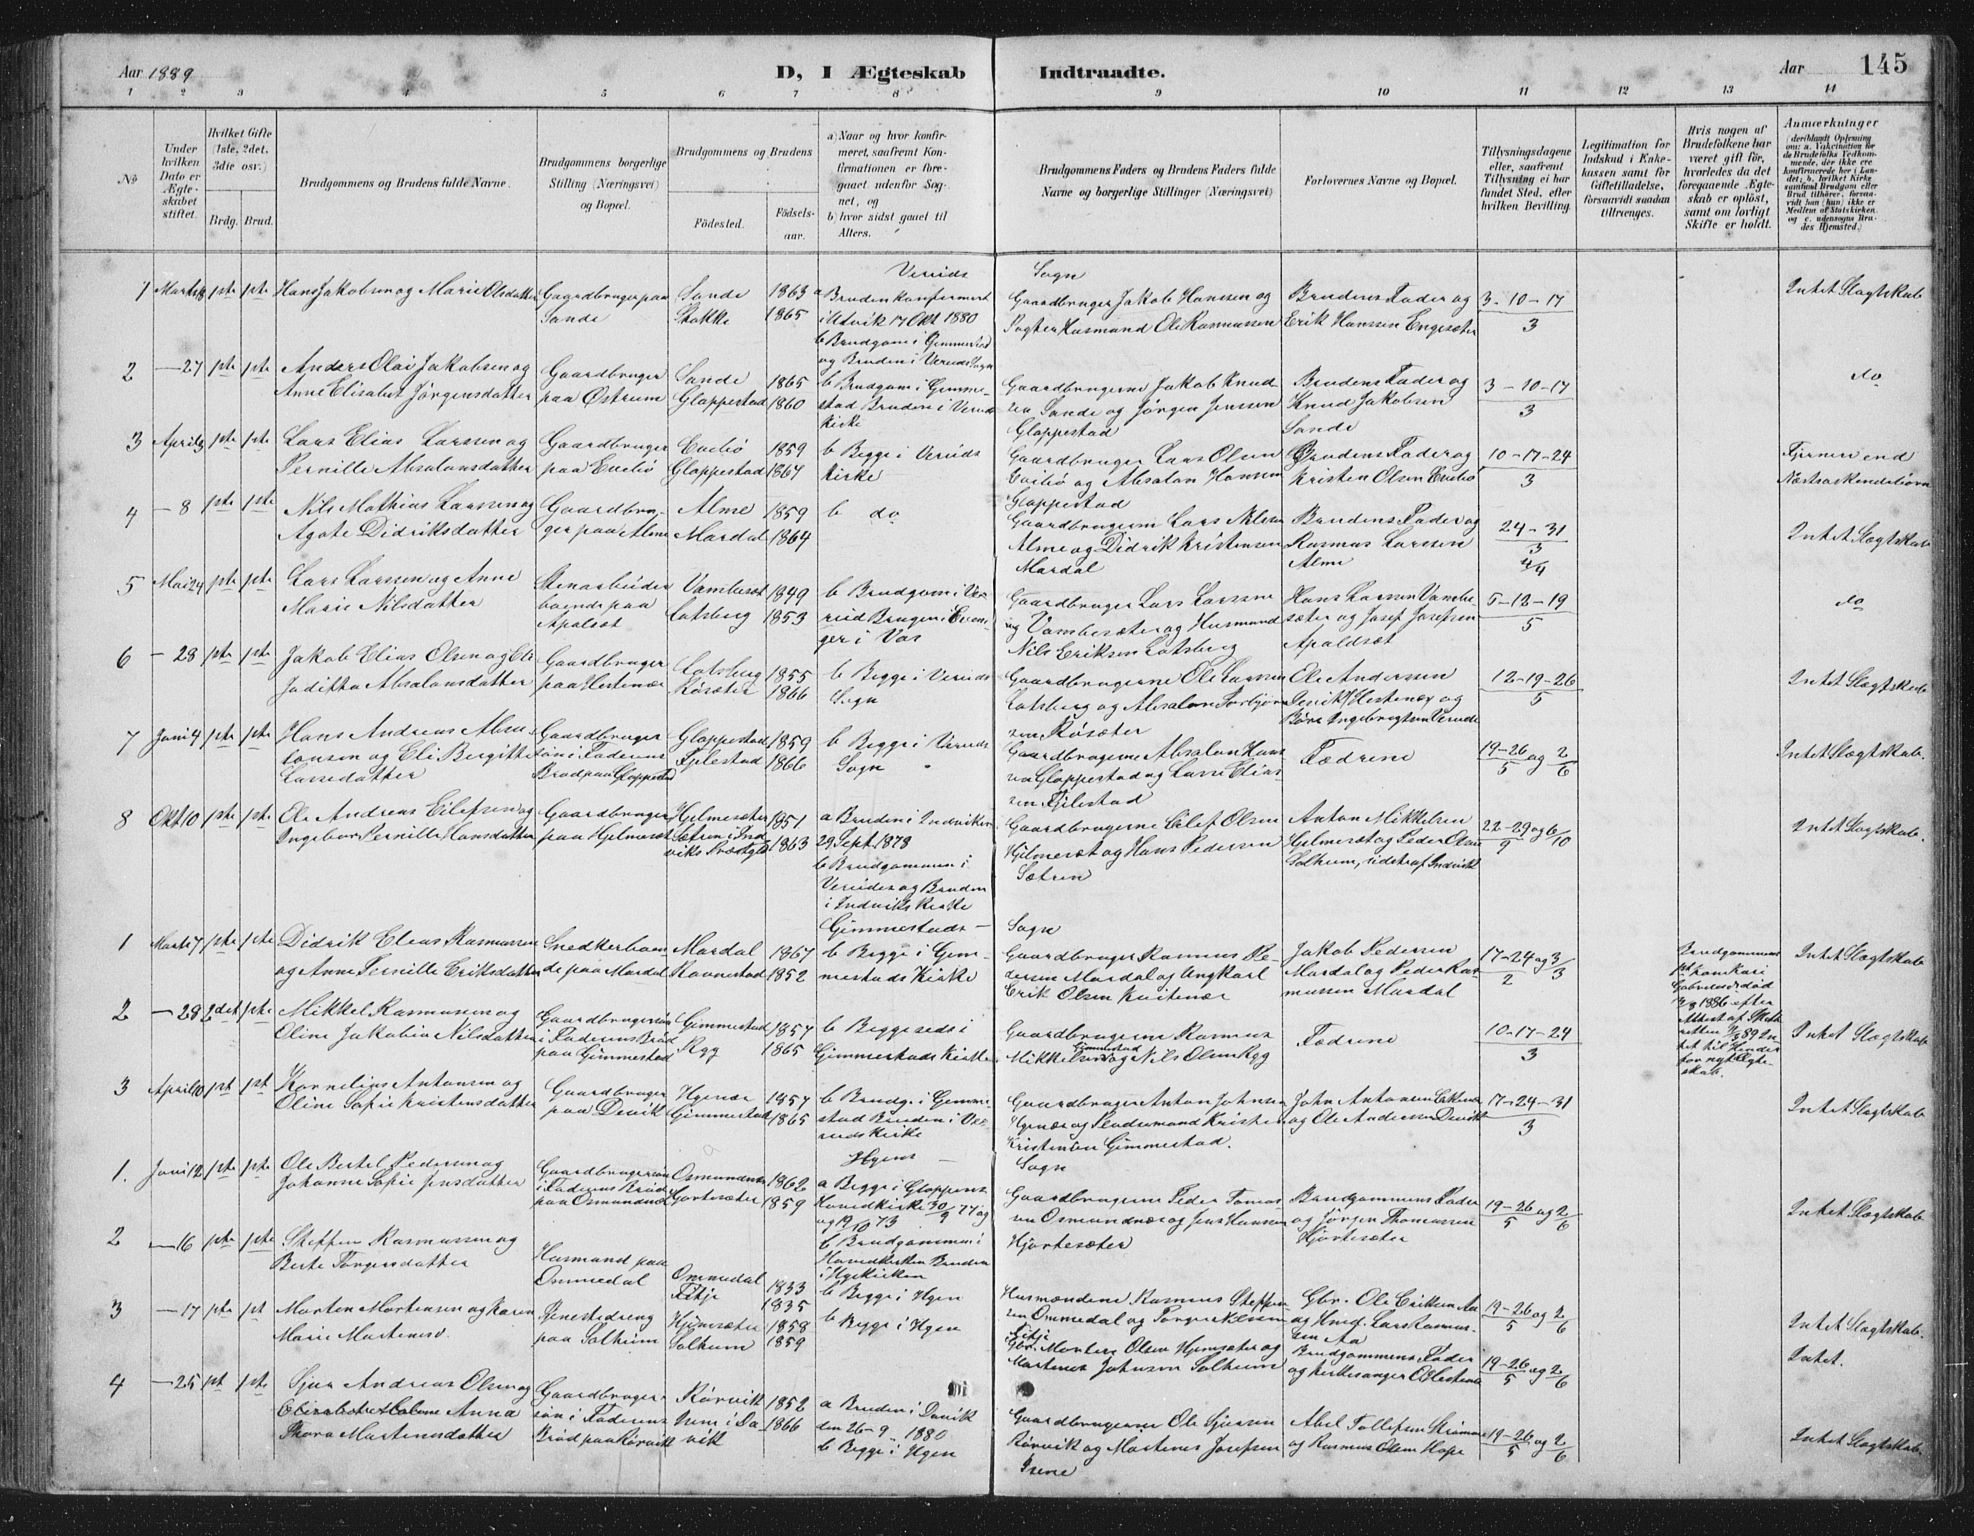 Aar 1889
D, I Ægteskab Indtraadte.
Aar 145
1 2 3 4 5 6 7 8 9 10 11 12 13 14
No
Under hvilken Dato er Ægteskabet stiftet.
Hvilket Gifte (1ste, 2det, 3die osv.)
Brdg. Brud.
Brudgommens og Brudens fulde Navne.
Brudgommens borgerlige Stilling (Næringsvei) og Bopæl.
Brudgommens og Brudens
Födested.
Födselsaar.
a) Naar og hvor konfirmeret, saafremt Konfirmationen er foregaaet udenfor Sognet, og
b) hvor sidst gaaet til Alters.
Brudgommens Faders og Brudens Faders fulde Navne og borgerlige Stillinger (Næringsvei)
Forlovernes Navne og Bopæl.
Tillysningsdagene eller, saafremt Tillysning ei har fundet Sted, efter hvilken Bevilling.
Legitimation for Indskud i Enkekassen samt for Giftetilladelse, forsaavidt saadan tiltrænges.
Hvis nogen af Brudefolkene har været gift för, hvorledes da det foregaaende Ægteskab er oplöst, samt om lovligt Skifte er holdt.
Anmærkninger
(deriblandt Oplysning om: a. Vakcination for de Brudefolks Vedkommende, der ikke ere konfirmerede her i Landet; b. hvilket Kirkesamfund Brudgom eller Brud tilhörer, forsaavidt han (hun) ikke er Medlem af Statskirken, og c. udensogns Brudes Hjemsted.)
Vereids Sogn
1 Marts 18 1ste 1ste Hans Jakobsen og Marie Olsdatter
Gaardbruger paa Sande
Sande 1863
Stokke 1865
a Bruden konfirmert i Utvik 17 Okt 1880
b Brudgom i Gimmestad og Bruden i Vereids Sogn
Gaardbruger Jakob Hanssen og
Husmand Ole Rasmussen
Brudens Fader og
Erik Hanssen Engesæter
3-10-17
3
Intet Slægtskab
2 – 27 1ste 1ste Anders Olai Jakobsen og
Anne Elisabet Jørgensdatter
Gaardbruger paa Østrum
Sande 1865
Gloppestad 1860
b Brudgom i Gimmestad Bruden i Vereids Kirke
Gaardbrugerne Jakob Knudsen Sande og Jørgen Jenssen Gloppestad
Brudens Fader og
Knud Jakobsen
Sande
3-10-17
3
do
3 April 3 1ste 1ste Lars Elias Larssen og
Pernille Absalonsdatter
Gaardbruger paa Evebø
Evebø 1859
Gloppestad 1867
b Begge i Vereids Kirke
Gaardbruger Lars Olsen
Evebø og Absalon Hansen
Gloppestad
Brudens Fader og
Kristen Olsen Evebø
10-17-24
3
Fjernere end
Næstsøskendebørn
4 – 8 1ste 1ste Nils Mathias Larssen og
Agate Didriksdatter
Gaardbruger paa Alme
Alme 1859
Mardal 1864
b do
Gaardbrugerne Lars Nilsen
Alme og Didrik Kristensen
Mardal
Brudens Fader og
Rasmus Larssen
Alme
24-31
3
4/4
Intet Slægtskab
5 Mai 24 1ste 1ste Lars Larssen og Anne
Marie Nilsdatter
Stenarbeider boende paa Apalset
Vambeset 1849
Lotsberg 1853
b Brudgom i Vereid
Gaardbruger Lars Larssen
Vambesæter og Husmand
Nils Eriksen Lotsberg
Hans Larssen Vambesæter og Josef Josefsen
Apaldsæt
5-12-19
5
do
6 – 28 1ste 1ste Jakob Elias Olsen og Eli
Juditha Absalonsdatter
Gaardbruger paa Hestenæs
Lotsberg 1855
Røsæter 1866
b Begge i Vereids Sogn
Gaardbrugerne Ole Larssen
Lotsberg og Absalon Torbjørnsen Røsæter
Ole Anderssen
12-19-26
5
Intet Slægtskab
7 Juni 4 1ste 1ste Hans Andreas Absalonsen og Eli Bergitte
Larsdatter
Gaardbrugersøn i Faderens Brød paa Gloppestad
Gloppestad 1859
Fjelestad 1866
b Begge i Vereids Sogn
Gaardbrugerne Absalon Hanssen Gloppestad og Lars Eliassen Fjelestad
Fædrene
19-26/5 og 2/6
Intet Slægtskab.
8 Okt 10 1ste 1ste Ole Andreas Eilefsen og
Ingebor Pernille Hansdatter
Gaardbruger paa Hjelmeset
Hjelmesæter 1851
Sætren i Indviks Præstgj 1863
a Bruden i Indviken
29 Sept 1878
b Brudgommen i
Vereide og Bruden
i Indviks Kirke
Gaardbrugerne Eilef Olsen
Hjelmeset og Hans Pedersen
Sætren
Anton Mikkelsen
Hjelmesæt og Peder Olsen
Solheim, sidst af Indvik
22-29/9 og 6/10
Intet Slægtskab.
Gimmestads – Sogn
1 Marts 7 1ste 1ste Didrik Elias Rasmussen
og Anne Pernille Eriksdatter
Snedker boende paa Mardal
Mardal 1867
Ravnestad 1852
b Begge i Gimmestads Kirke
Gaardbruger Rasmus Pedersen Mardal og Ungkarl
Erik Olsen
Jakob Pedersen
Mardal og Peder Rasmussen Mardal
17-24/2 og 3/3
Intet Slægtskab
2 – 28 2det 1ste Mikkel Rasmussen og
Oline Jakobia Nilsdatter
Gaardbrugersøn i Faderens Brød paa Gimmestad
Gimmestad 1857
Rygg 1865
b Begge sids i
Gimmestads Kirke
Gaardbrugerne Rasmus
Mikkelsen Gimmestad og Nils Olsen Rygg
Fædrene
10-17-24
3
Brudgommens
Intet Slægtskab
3 April 10 1st 1st Kornelius Antonsen og
Oline Sofie Kristensdatter
Gaardbruger paa Devik
Hyenæs 1857
Gimmestad 1865
b Brudg. i Gimmestad Bruden i Vereids Kirke
Gaardbruger Anton Johnsen
Hyenæs og Kristen
Kristensen Gimmestad.
John Antonsen
og Ole Anderssen Devik
17-24-31
3
Intet Slægtskab
Hyens – Sogn
1. Juni 12 1ste 1ste Ole Bertel Pedersen og
Johanne Sofie Jensdatter
Gaardbrugersøn i Faderens Brød paa Osmundnes
Osmundnes 1862
Hjortesæter 1859
a Begge i Gloppens
Hovedkirke 30/9 77 og
og 19/10 73
b Brudgommen i
Hovedkirken Bruden
i Hyekirken
Gaardbrugerne Peder Tomassen Osmundnæs og Jens Hanssen
Hjortesæter
Brudgommens Fader
og Jørgen Thomassen
Hjortesæter
19-26/5 og 2/6
Intet Slægtskab
2 – 16 1ste 1ste Steffen Rasmussen og
Berte Torgersdatter
Husmand paa
Ommedal
Ommedal 1833
Fitje 1835
b Begge i Hyen
Husmændene Rasmus Steffensen Ommedal og Torger
Fitje
Gbr. Ole Eriksen Aa
og Hmd. Lars Rasmussen Aa
19-26/5 og 2/6
Intet Slægtskab.
3 – 17 1ste 1st Morten Mortensen og Karen
Marie Martensd.
Tjenestedreng
paa Solheim
Hjemsæter 1858
Solheim 1859
b Begge i Hyen
Gbr. Morten Olsen Hjemsæter og
Martenus Johnsen Solheim
Brudgommens Fader
og Kirkesanger
19-26/5 og 2/6
Intet.
4 – 25 1st 1ste Sjur Andreas Olsen og
Anna
Thora Martensdatter
Gaardbrugersøn i Faderens
Brød paa Rørvik
Rørvik 1852
Isene i Davik 1866
a Bruden i Davik
den 26-9-1880
b Begge i Hyen
Gaardbrugerne Ole Sjursen
Rørvik og Martenus Josefsen
Isene
Abel Tollefsen Strømme
og Rasmus Olsen Hope
19-26/5 og 2/6
Intet Slægtskab